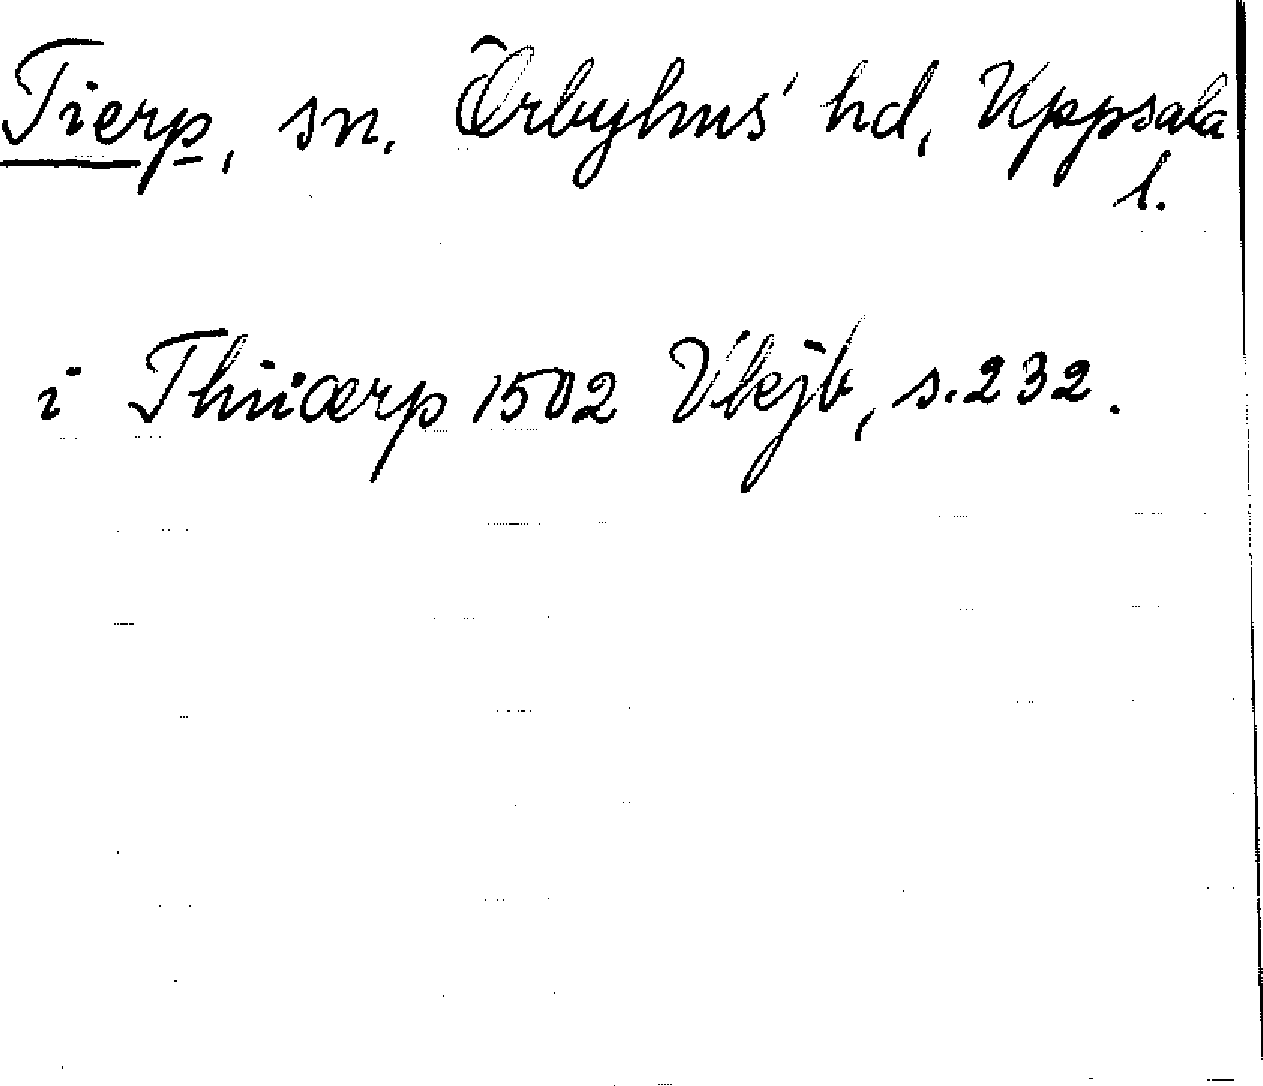 Tierp, sn. Örbyhus hd, Uppsala
l.
i Thiiærp 1502 Vkjb, s. 232.